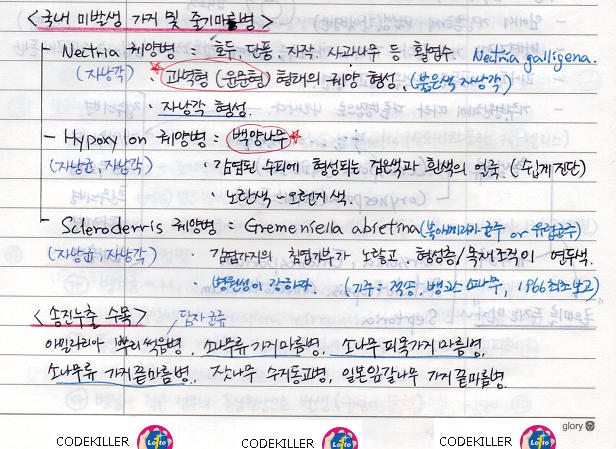 <국내 미발생 가지 및 줄기마름병>
- Nectria 궤양병 : 호두, 단풍, 자작, 사과나무 등 활엽수. Nectria galligena.
(자낭각) · 과녁형 (윤문형) 형태의 궤양 형성. (붉은색 자낭각)
· 자낭각 형성.
- Hypoxylon 궤양병 = 백양나무
(자낭균, 자낭각) · 감염된 수피에 형성되는 검은색과 흰색의 얼룩. (쉽게 진단)
· 노란색~오렌지색.
- Scleroderris 궤양병 = Gremeniella abietina (북아메리카균주 or 유럽균주)
(자낭균, 자낭각) · 감염가지의 침엽기부가 노랗고 형성층/목재조직이 연두색.
· 병원성이 강하다. (기주 : 적송, 뱅크스 소나무, 1966 최초 보고)
<송진누출 수목>
담자균류
아밀라리아 뿌리썩음병, 소나무류 가지마름병, 소나무 피목가지마름병,
소나무류 가지끝마름병, 잣나무 수지동고병, 일본잎갈나무 가지끝마름병.
glory
CODEKILLER Lotto CODEKILLER Lotto CODEKILLER Lotto